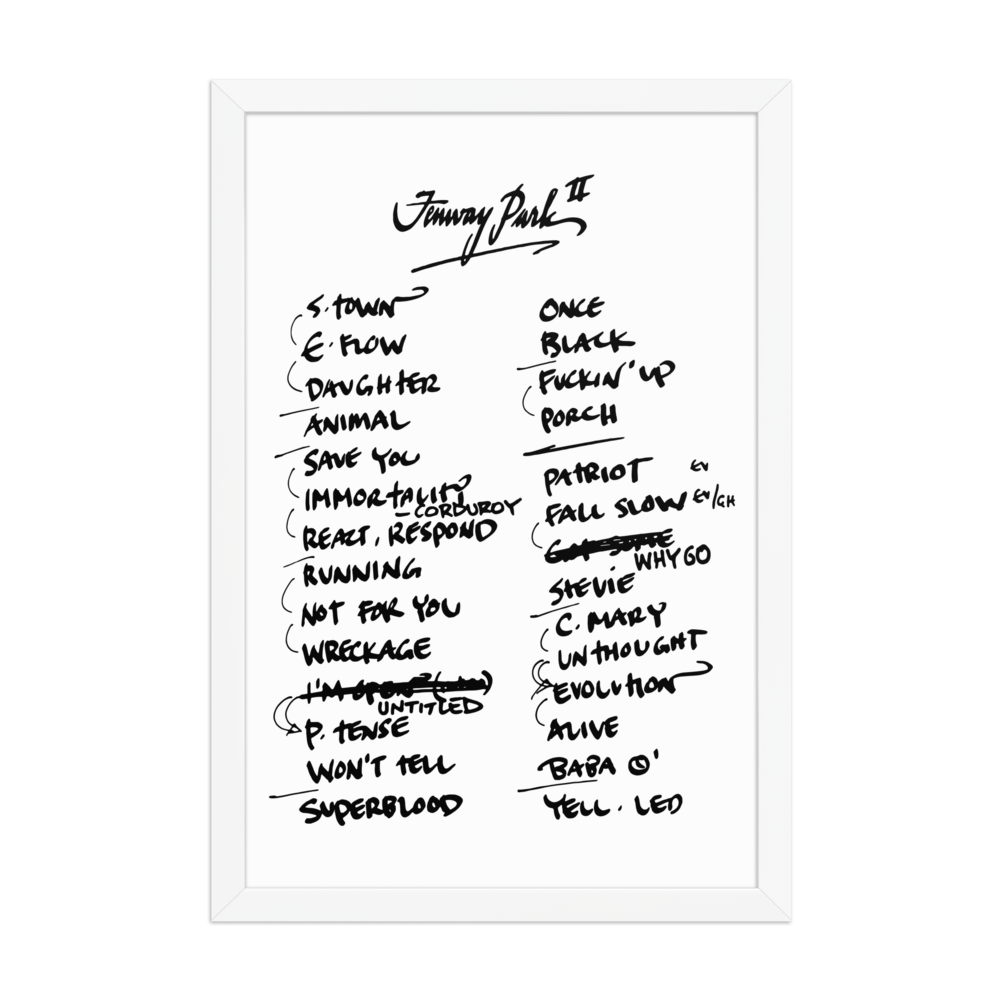 Fenway Park II
S. TOWN
E. FLOW
DAUGHTER
ANIMAL
SAVE YOU
IMMORTALITY
- CORDUROY
REACT, RESPOND
RUNNING
NOT FOR YOU
WRECKAGE
I'M OPEN
UNTITLED
P. TENSE
WON'T TELL
SUPERBLOOD
ONCE
BLACK
FUCKIN' UP
PORCH
PATRIOT EV
FALL SLOW EV/GH
GET SOME
WHY GO
STEVIE
C. MARY
UNTHOUGHT
EVOLUTION
ALIVE
BABA O'
YELL. LED